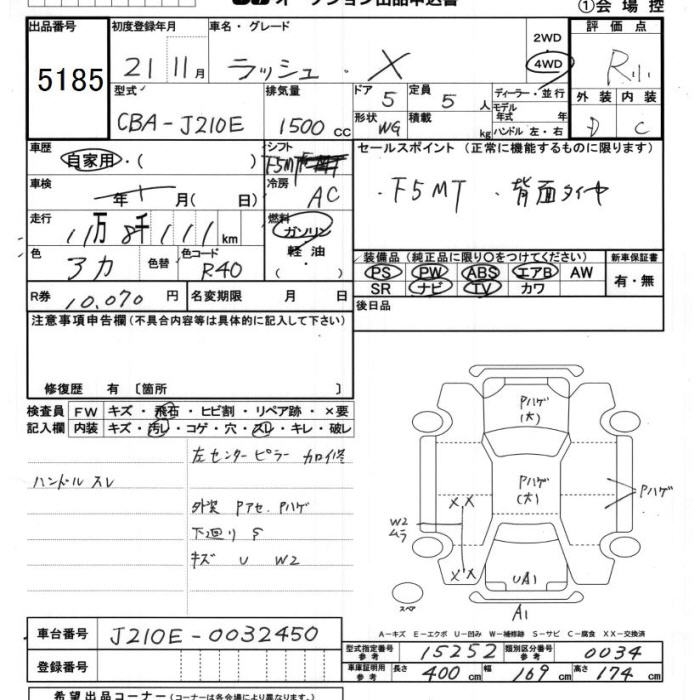 オークション出品申込書
①会場控
出品番号 初度登録年月 車名・グレード 評価点
5185 21 11月 ラッシュ・X 2WD 4WD R
型式 排気量 ドア 定員 ディーラー・並行 外装 内装
CBA-J210E 1500 cc 5 5 人 モデル年式 年 D C
形状 WG 積載 kg ハンドル 左・右
車歴 シフト セールスポイント (正常に機能するものに限ります)
自家用・( ) F5MT
車検 年 月( 日) 冷房 AC ・F5MT ・背面タイヤ
走行 燃料
11万8千111km ガソリン
色 色替 色コード 軽油 装備品 (純正品に限り○をつけてください) 新車保証書
アカ R40 ・( ) PS PW ABS エアB AW 有・無
SR ナビ TV カワ
R券 10,070 円 名変期限 月 日 後日品
注意事項申告欄(不具合内容等は具体的に記入して下さい)
修復歴 有 〔箇所 〕
検査員 FW キズ・飛石・ヒビ割・リペア跡・×要
記入欄 内装 キズ・汚レ・コゲ・穴・スレ・キレ・破レ
左センターピラー カロイ修
ハンドル スレ
外装 Pアセ.Pハゲ
下廻り S
キズ U W2
Pハゲ
(大)
Pハゲ
(大)
Pハゲ
X,X
W2
ムラ
X X
UA1
スペア
A1
A-キズ E-エクボ U-凹み W-補修跡 S-サビ C-腐食 XX-交換済
車台番号 J210E-0032450
型式指定番号参考 15252 類別区分番号参考 0034
登録番号
車庫証明用参考 長さ 400cm 幅 169cm 高さ 174cm
希望出品コーナー(コーナーは各会場により異なります)